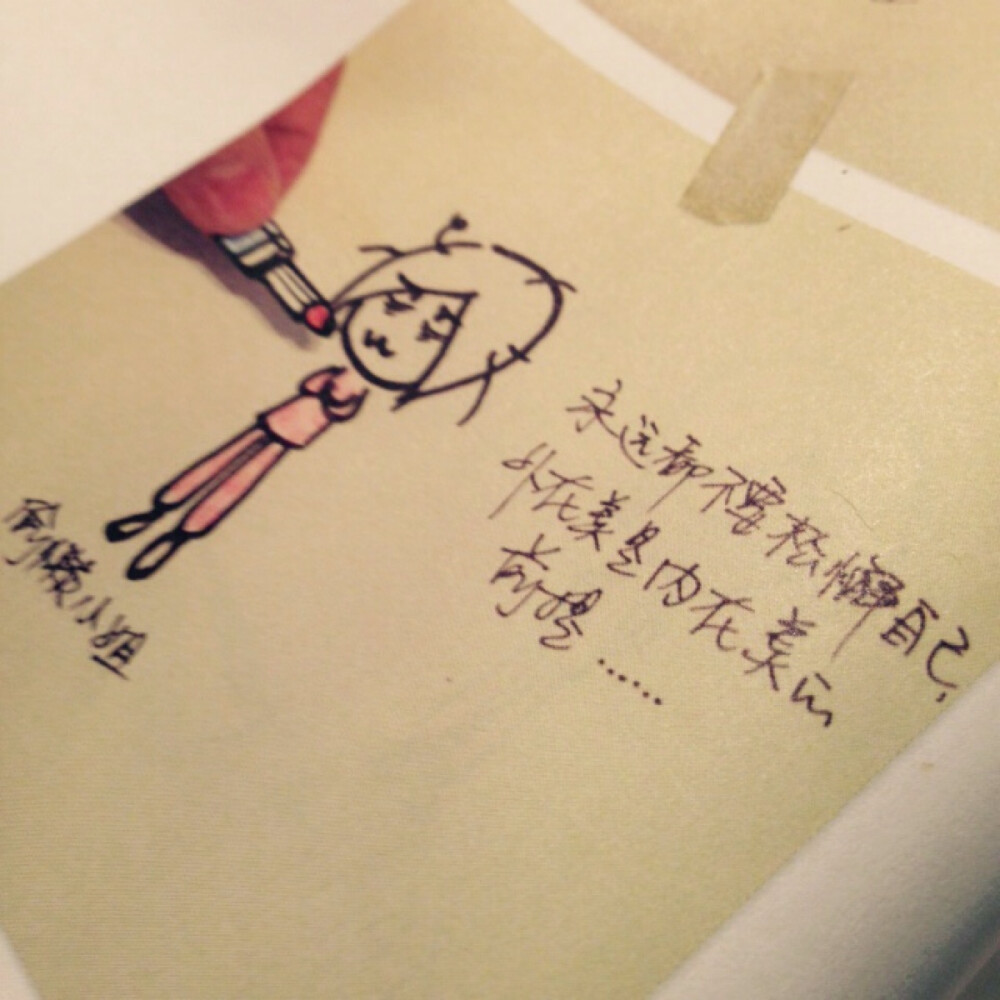 永远都不要松懈自己,
外在美是内在美的
前提……
偷懒小姐